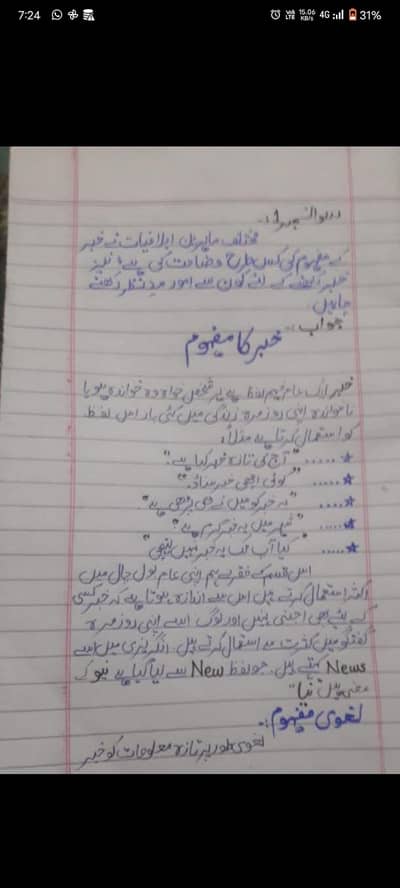 7:24
VoLTE 15.06 KB/s 4G 31%
سوال نمبر 1:-
مختلف ماہرین ابلاغیات نے خبر
کے مفہوم کی کس طرح وضاحت کی ہے؟ نیز
خبر لکھنے کے لئے کون سے امور مدنظر رکھنے
چاہئیں
جواب:-
خبر کا مفہوم
خبر ایک عام فہم لفظ ہے ہر شخص خواہ وہ خواندہ ہو یا
ناخواندہ اپنی روزمرہ زندگی میں کئی بار اس لفظ
کو استعمال کرتا ہے مثلاً:
★ ..... "آج کی تازہ خبر کیا ہے"
★ ..... "کوئی اچھی خبر سناؤ"
★ .... "یہ خبر کو میں نے بھی پڑھی ہے"
★ ..... "شہر میں یہ خبر گرم ہے"
★ ..... "کیا آپ تک یہ خبر نہیں پہنچی"
اس قسم کے فقرے ہم اپنی عام بول چال میں
اکثر استعمال کرتے ہیں اس سے اندازہ ہوتا ہے کہ خبر کسی
کے لئے بھی اجنبی نہیں اور لوگ اسے اپنی روزمرہ
گفتگو میں کثرت سے استعمال کرتے ہیں۔ انگریزی میں اسے
News کہتے ہیں۔ جو لفظ New سے لیا گیا ہے نیو کے
معنی ہیں "نیا"
لغوی مفہوم:-
لغوی طور پر تازہ معلومات کو خبر